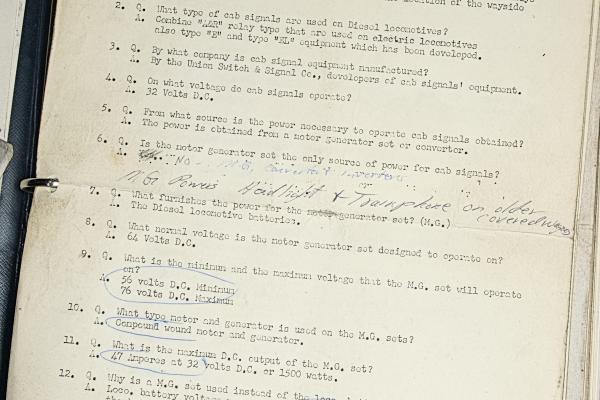 location of the wayside
2. Q. What type of cab signals are used on Diesel locomotives?
A. Combine "AAR" relay type that are used on electric locomotives
also type "E" and type "EL" equipment which has been developed.
3. Q. By what company is cab signal equipment manufactured?
A. By the Union Switch & Signal Co., developers of cab signals' equipment.
4. Q. On what voltage do cab signals operate?
A. 32 Volts D.C.
5. Q. From what source is the power necessary to operate cab signals obtained?
A. The power is obtained from a motor generator set or convertor.
6. Q. Is the motor generator set the only source of power for cab signals?
A. No - M.G, Converters inverters
M.G. Powers Headlight & Trainphone on older
covered wagons
7. Q. What furnishes the power for the generator set? (M.G.)
A. The Diesel locomotive batteries.
8. Q. What normal voltage is the motor generator set designed to operate on?
A. 64 Volts D.C.
9. Q. What is the minimum and the maximum voltage that the M.G. set will operate
on?
A. 56 volts D.C. Minimum
76 volts D.C. Maximum
10. Q. What type motor and generator is used on the M.G. sets?
A. Compound wound motor and generator.
11. Q. What is the maximum D.C. output of the M.G. set?
A. 47 Amperes at 32 volts D.C. or 1500 watts.
12. Q. Why is a M.G. set used instead of the
A. Loco. battery